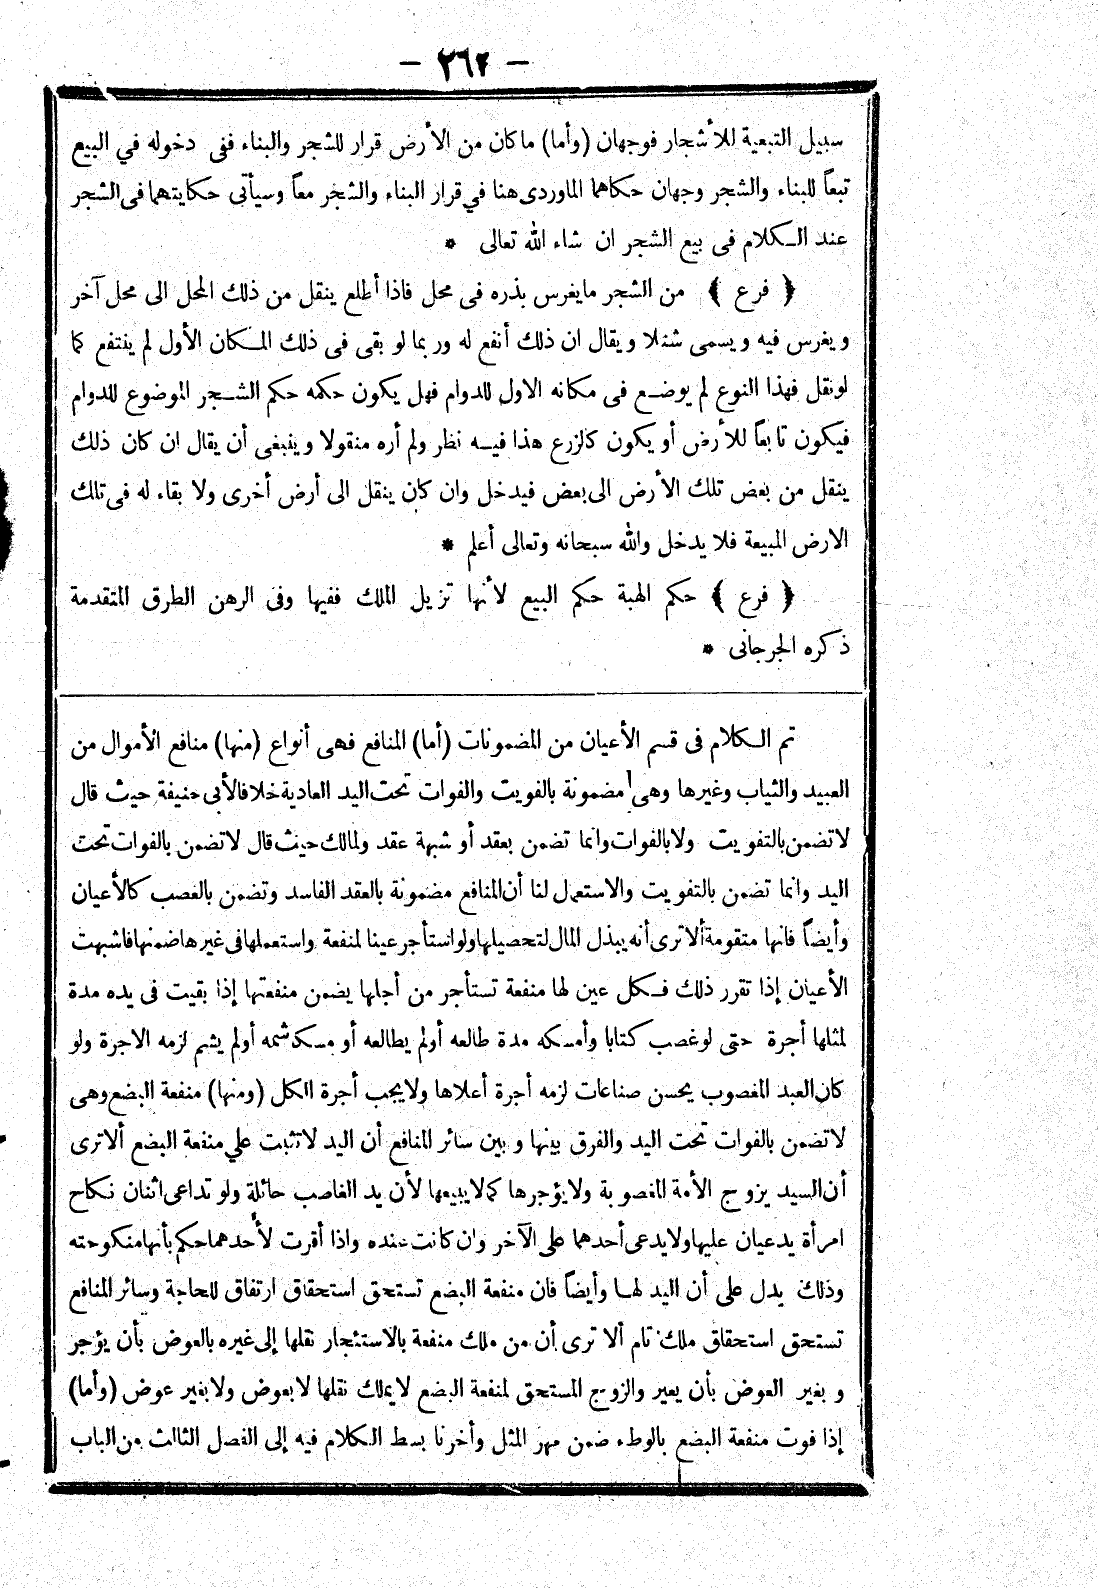 - ٢٦٢ -
سبيل التبعية للأشجار فوجهان (وأما) ماكان من الأرض قرار للشجر والبناء ففى دخوله في البيع
تبعاً للبناء والشجر وجهان حكاهما الماوردى هنا في قرار البناء والشجر معاً وسيأتى حكايتهما فى الشجر
عند الكلام فى بيع الشجر ان شاء الله تعالى *
﴿ فرع ﴾ من الشجر مايغرس بذره فى محل فاذا أطلع ينقل من ذلك المحل الى محل آخر
ويغرس فيه ويسمى شتلا ويقال ان ذلك أنفع له وربما لو بقى فى ذلك المكان الأول لم ينتفع كما
لونقل فهذا النوع لم يوضع فى مكانه الاول للدوام فهل يكون حكمه حكم الشجر الموضوع للدوام
فيكون تابعاً للأرض أو يكون كالزرع هذا فيه نظر ولم أره منقولا وينبغى أن يقال ان كان ذلك
ينقل من بعض تلك الأرض الى بعض فيدخل وان كان ينقل الى أرض أخرى ولا بقاء له فى تلك
الارض المبيعة فلا يدخل والله سبحانه وتعالى أعلم *
﴿ فرع ﴾ حكم الهبة حكم البيع لأنها تزيل الملك ففيها وفى الرهن الطرق المتقدمة
ذكره الجرجانى *
تم الكلام فى قسم الأعيان من المضمونات (أما) المنافع فهى أنواع (منها) منافع الأموال من
العبيد والثياب وغيرها وهى مضمونة بالفويت والفوات تحت اليد العادية خلافا لأبى حنيفة حيث قال
لاتضمن بالتفويت ولا بالفوات وانما تضمن بعقد أو شبهة عقد ولمالك حيث قال لاتضمن بالفوات تحت
اليد وانما تضمن بالتفويت والاستعمال لنا أن المنافع مضمونة بالعقد الفاسد وتضمن بالغصب كالأعيان
وأيضاً فانها متقومة ألاترى أنه يبذل المال لتحصيلها ولو استأجر عينا لمنفعة واستعملها فى غيرها ضمنها فاشبهت
الأعيان إذا تقرر ذلك فكل عين لها منفعة تستأجر من أجلها يضمن منفعتها إذا بقيت فى يده مدة
لمثلها أجرة حتى لوغصب كتابا وأمسكه مدة طالعه أولم يطالعه أو مسك شمه أولم يشم لزمه الاجرة ولو
كان العبد المغصوب يحسن صناعات لزمه أجرة أعلاها ولا يجب أجرة الكل (ومنها) منفعة البضع وهى
لاتضمن بالفوات تحت اليد والفرق بينها وبين سائر المنافع أن اليد لاتثبت علي منفعة البضع ألاترى
أن السيد يزوج الأمة المغصوبة ولا يؤجرها كما لا يبيعها لأن يد الغاصب حائلة ولو تداعى اثنان نكاح
امرأة يدعيان عليها ولا يدعى أحدهما على الآخر وان كانت عنده واذا أقرت لأحدهما حكم بأنها منكوحته
وذلك يدل على أن اليد لها وأيضاً فان منفعة البضع تستحق استحقاق ارتفاق للحاجة وسائر المنافع
تستحق استحقاق ملك تام ألا ترى أن من ملك منفعة بالاستئجار نقلها إلى غيره بالعوض بأن يؤجر
وبغير العوض بأن يعير والزوج المستحق لمنفعة البضع لايملك نقلها لا بعوض ولا بغير عوض (وأما)
إذا فوت منفعة البضع بالوطء ضمن مهر المثل وأخرنا بسط الكلام فيه إلى الفصل الثالث من الباب